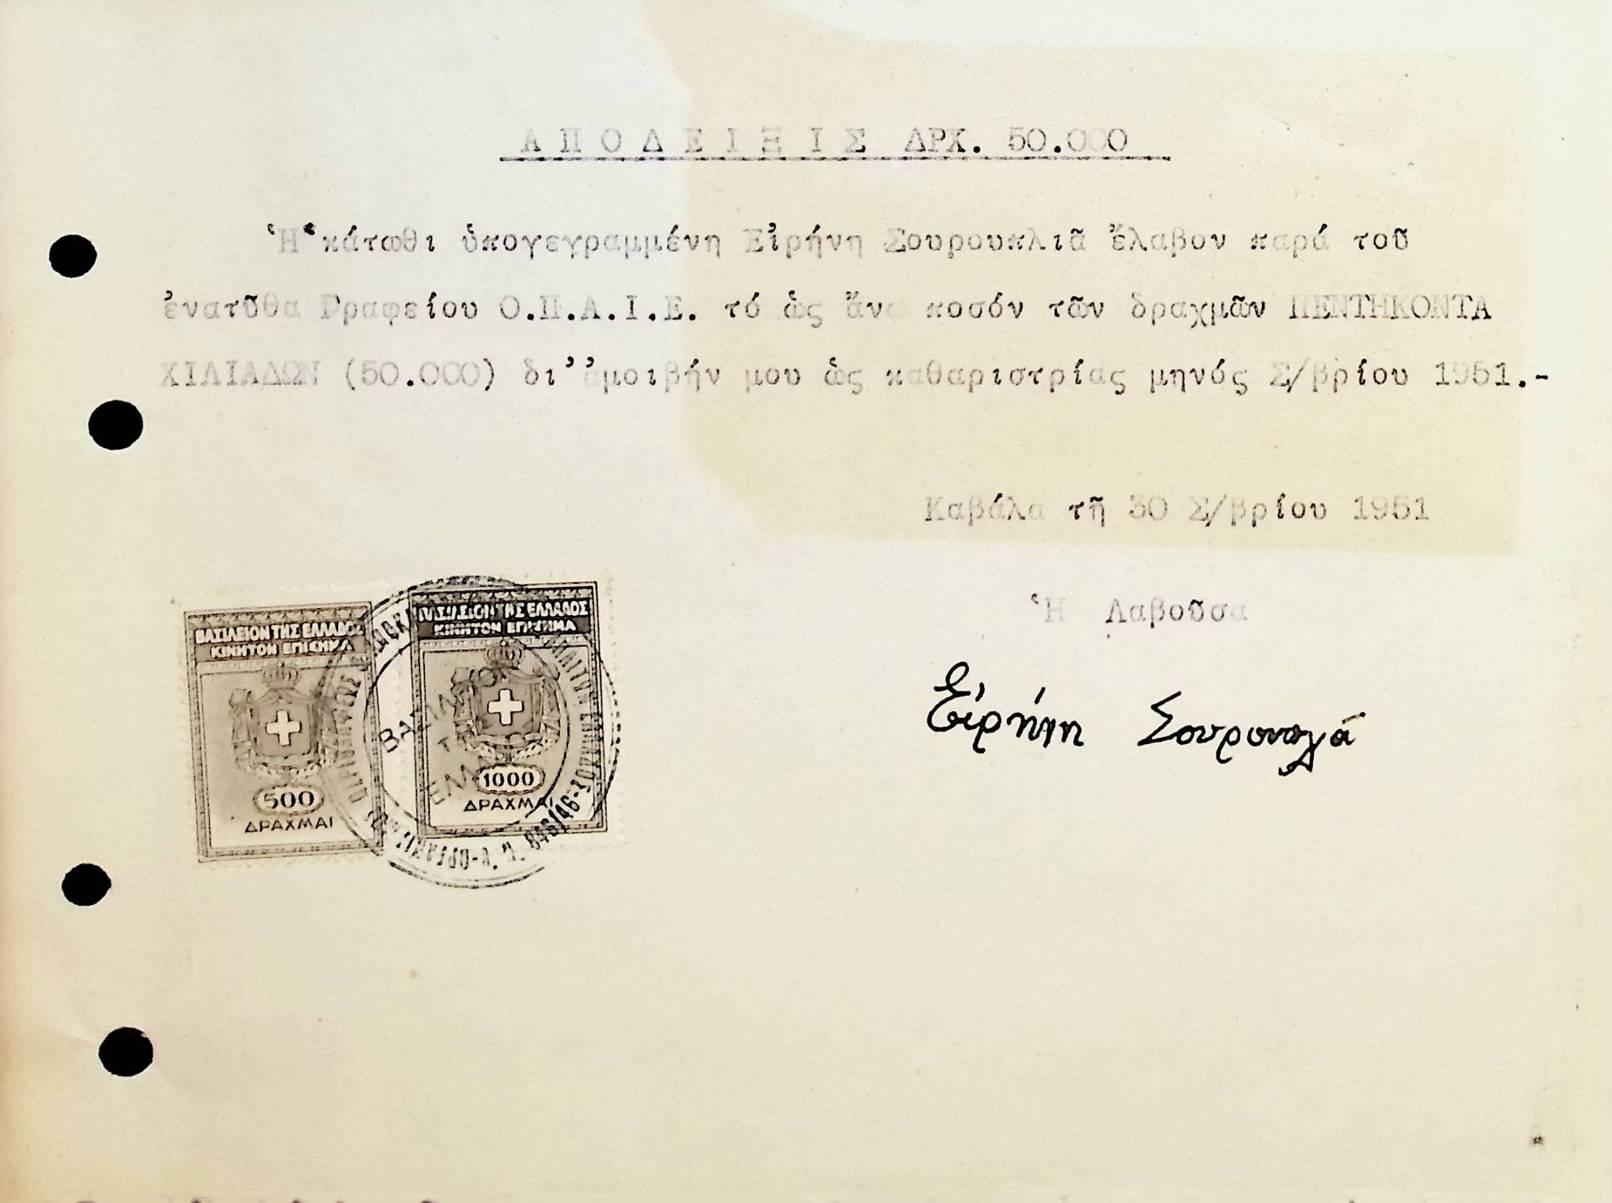 Α Π Ο Δ Ε Ι Ξ Ι Σ ΔΡΧ. 50.000
Ἡ κάτωθι ὑπογεγραμμένη Εἰρήνη Σουρουκλιᾶ ἔλαβον παρά τοῦ
ἐνατῦθα Γραφείου Ο.Π.Α.Ι.Ε. τό ὡς ἄνα ποσόν τῶν δραχμῶν ΠΕΝΤΗΚΟΝΤΑ
ΧΙΛΙΑΔΩΝ (50.000) δι' ἀμοιβήν μου ὡς καθαριστρίας μηνός Σ/βρίου 1951.-
Καβάλα τῇ 30 Σ/βρίου 1951
Ἡ Λαβοῦσα
Εἰρήνη
ΒΑΣΙΛΕΙΟΝ ΤΗΣ ΕΛΛΑΔΟΣ
ΚΙΝΗΤΟΝ ΕΠΙΣΗΜΑ
500
ΔΡΑΧΜΑΙ
ΒΑΣΙΛΕΙΟΝ ΤΗΣ ΕΛΛΑΔΟΣ
ΚΙΝΗΤΟΝ ΕΠΙΣΗΜΑ
1000
ΔΡΑΧΜΑΙ
846/46